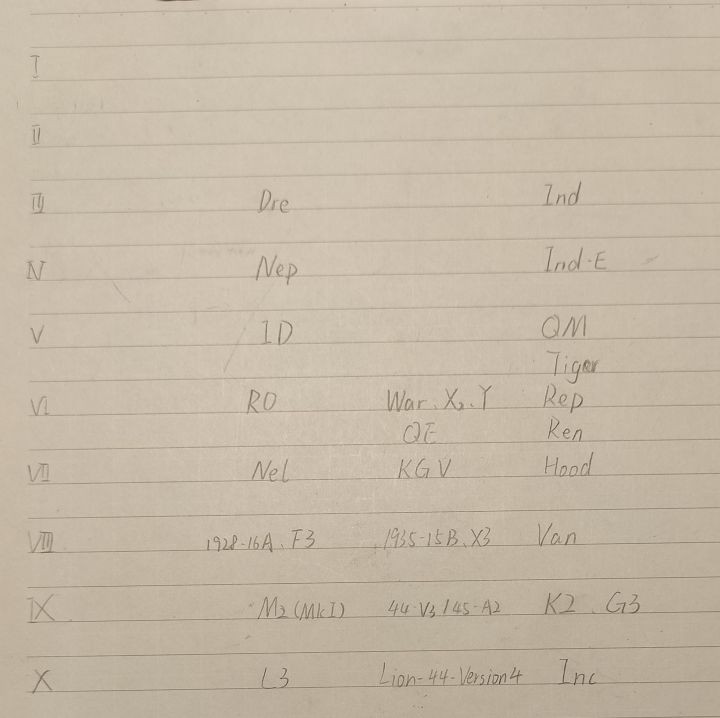 I
II
III Dre Ind
IV Nep Ind-E
V ID QM
Tiger
VI RO War、X2、Y Rep
QE Ren
VII Nel KGV Hood
VIII 1928-16A、F3 1935-15B、X3 Van
IX M2(MkI) 44-V3/45-A2 K2、G3
X L3 Lion-44-Version4 Inc